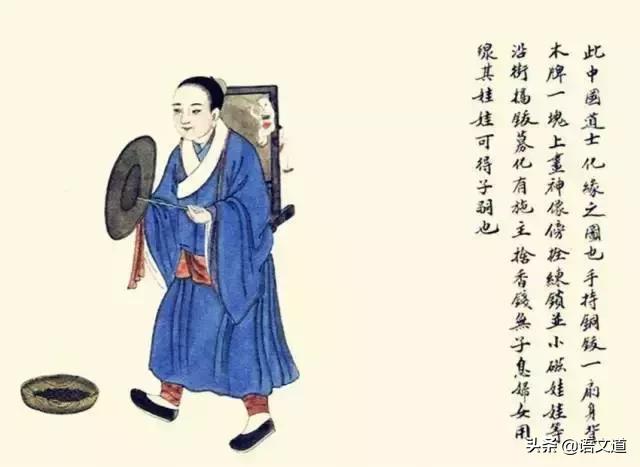 此中國道士化緣之圖也手持銅鈸一扇身背
木牌一塊上畫神像傍拴練鎖並小磁娃娃等
沿街搞鈸募化有施主捨香錢無子息婦女用
線其娃娃可得子嗣也
头条 @语文道